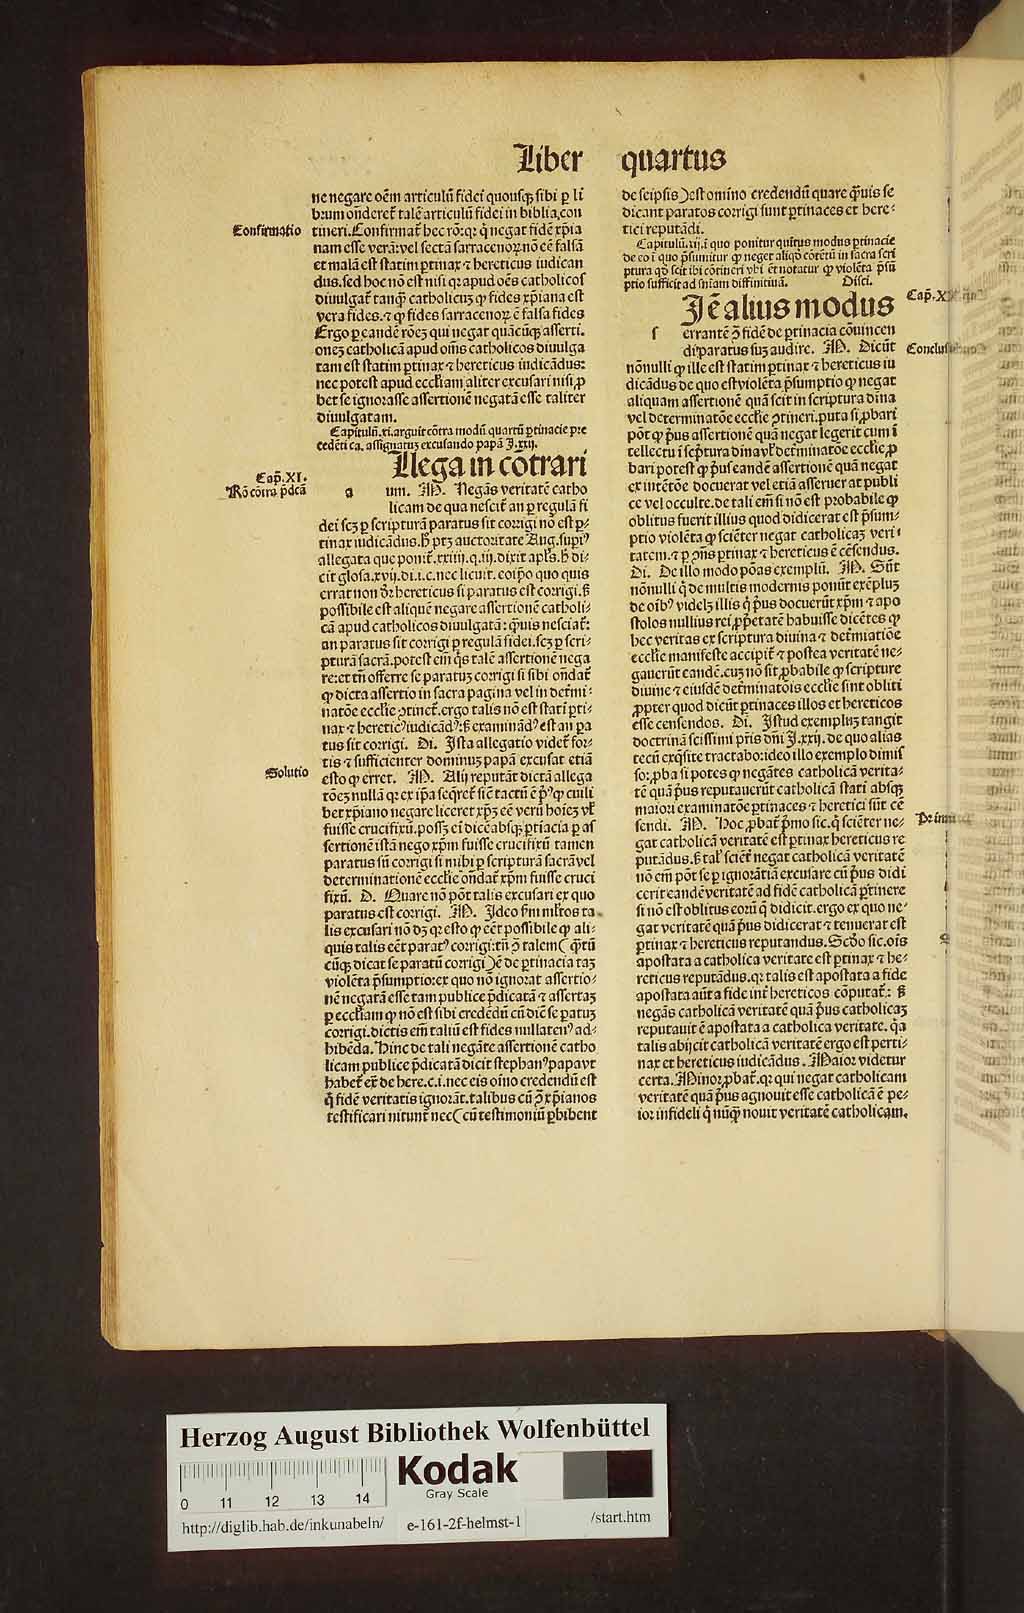 Liber quartus
ne negare oēm articulū fidei quousqꝫ sibi ꝑ li
brum onderet᷑ talē articulū fidei in biblia,con
Confirmatio
tineri.Confirmat᷑ hec rō:qꝛ q̇ negat fidē xp̄ia
nam esse verā:vel sectā sarracenoꝝ nō eē falsā
et malā est statim ꝑtinax ⁊ hereticus iudican
dus.sed hoc nō est nisi qꝛ apud oēs catholicos
diuulgat᷑ tanqꝫ catholicuꝫ ꝙ fides xp̄iana est
vera fides.⁊ ꝙ fides sarracenoꝝ ē falsa fides
Ergo ꝑ eandē rōeꝫ qui negat quācūqꝫ asserti.
oneꝫ catholicā apud oīns catholicos diuulga
tam est statim ꝑtinax ⁊ hereticus iudicādus:
nec potest apud eccl̄iam aliter excusari nisi ꝓ
bet se ignorasse assertionē negatā esse taliter
diuulgatam.
Capitulū.xi.arguit cōtra modū quartū ꝑtinacie pre
cedēti ca. assignatus excusando papā J.xxij.
Cap̄.XI.
Nega in cōtrari
Rō cōtra p̄dcā
a um. M. Negās veritatē catho
licam de qua nescit᷑ an ꝑ regulā fi
dei scꝫ ꝑ scripturā paratus sit corrigi nō est ꝑ-
tinax iudicādus.ꝧ ptꝫ auctoritate Aug.supiꝰ
allegata que ponit᷑.xxiiij.q.iij.dixit apl̄s.ꝧ di-
cit glosa.xvij.di.i.c.nec licuit. eoip̄o quo quis
errat non dꝫ hereticus si paratus est corrigi.ꝫ
possibile est aliquē negare assertionē catholi-
cā apud catholicos diuulgatā: qͣuis nesciat᷑:
an paratus sit corrigi ꝑ regulā fidei.scꝫ ꝑ scri-
pturā sacrā.potest em̄ q̇s talē assertionē nega
re:et tn̄ offerre se paratuꝫ corrigi si sibi ondat᷑
ꝙ dicta assertio in sacra pagina vel in det᷑mi-
natōe eccl̄ie ꝯtinet᷑.ergo talis nō est stati ꝑti-
nax ⁊ hereticꝰ iudicādꝰ:ꝫ examinādꝰ est an pa
tus sit corrigi. Di. Ista allegatio videt᷑ for-
tis ⁊ sufficienter dominuꝫ papā excusat etiā
Solutio
esto ꝙ erret. M. Alij reputāt dictā allega
tōeꝫ nullā qꝛ ex ip̄a seq̄ret᷑ sic̄ tactū ē pͥꝰ ꝙ cuili
bet xp̄iano negare liceret xp̄ꝫ eē verū hoīeꝫ vl̓
fuisse crucifixū.possꝫ ei dicē absqꝫ ꝑtiacia ꝑ as
sertionē istā nego xp̄m fuisse crucifixū tamen
paratus sū corrigi si mihi ꝑ scripturā sacrā vel
determinationē eccl̄ie ōndat᷑ xp̄m fuisse cruci
fixū. D. Quare nō pōt talis excusari ex quo
paratus est corrigi. M. Ideo sm̄ ml̓tos ta
lis excusari nō dꝫ qꝛ esto ꝙ eēt possibile ꝙ ali-
quis talis eēt paratꝰ corrigi:tn̄ ꝯ talem(qͣtū
cūqꝫ dicat se paratū corrigi)ē de ꝑtinacia taꝫ
violēta p̄sumptio:ex quo nō ignorat assertio-
nē negatā esse tam publice p̄dicatā ⁊ assertaꝫ
ꝑ eccl̄iam ꝙ nō est sibi credēdū cū diē se ꝑatuꝫ
corrigi.dictis em̄ taliū est fides nullatenꝰ ad-
hibēda. Hinc de tali negāte assertionē catho
licam publice p̄dicatā dicit stephanꝰ papa vt
habet᷑ ex̄ de here.c.i.nec eis oīno credendū est
q̇ fidē veritatis ignorāt.talibus cū ꝯ xp̄ianos
testificari nitunt᷑ nec(cū testimoniū ꝑhibent
de seipsis)est omīno credendū quare qͣuis se
dicant paratos corrigi sunt ꝑtinaces et here-
tici reputādi.
Capitulū.xij.ī quo ponitur quītus modus ꝑtinacie
de eo ī quo p̄sumitur ꝙ neget aliqd̄ cōtētū in sacra scri
ptura qd̄ scit ibi cōtineri vbi et notatur ꝙ violēta p̄sū
ptio sufficit ad sn̄iam diffinitiuā. Disci.
Jē alius modus
s errantē ꝯ fidē de ꝑtinacia cōuincen
di paratus suꝫ audire. M. Dicūt
nōnulli ꝙ ille est statim ꝑtinax ⁊ hereticus iu
dicādus de quo est violēta p̄sumptio ꝙ negat
aliquam assertionē quā scit in scriptura dīna
vel determinatōe eccl̄ie ꝯtineri.puta si ꝓbari
pōt ꝙ p̄us assertionē quā negat legerit cum ī
tellectu ī sc̄ptura dīna vl̓ det᷑minatōe eccl̄ie ꝓ
bari potest ꝙ p̄us eandē assertionē quā negat
ex intētōe docuerat vel etiā asseruerat publi
ce vel occulte.de tali em̄ si nō est probabile ꝙ
oblitus fuerit illius quod didicerat est p̄sum-
ptio violēta ꝙ sciēter negat catholicaꝫ veri-
tatem.⁊ ꝑ ꝯn̄s ꝑtinax ⁊ hereticus ē cēsendus.
Di. De illo modo pōas exemplū. M. Sūt
nōnulli q̇ de multis modernis ponūt exēpluꝫ
de oībꝰ videlꝫ illis q̇ p̄us docuerūt xp̄m ⁊ apo
stolos nullius rei ꝓpͥetatē habuisse dicētes ꝙ
hec veritas ex scriptura diuina ⁊ det᷑miatiōe
eccl̄ie manifeste accipit᷑ ⁊ postea veritatē ne-
gauerūt eandē.cuꝫ nō sit ꝓbabile ꝙ scripture
diuine ⁊ eiusdē det᷑minatōis eccl̄ie sint obliti
ꝓpter quod dicūt ꝑtinaces illos et hereticos
esse censendos. Di. Istud exempluꝫ tangit
doctrinā sc̄issimi pr̄is dn̄i J.xxij. de quo alias
tecū exqͥsite tractabo:ideo illo exemplo dimis
so:ꝓba si potes ꝙ negātes catholicā verita-
tē quā p̄us reputauerūt catholicā stati absqꝫ
maiori examinatōe ꝑtinaces ⁊ heretici sūt cē
sendi. M. Hoc ꝓbat᷑ pͥmo sic.q̇ sciēter ne-
gat catholicā veritatē est ꝑtinax hereticus re
putādus.ꝫ tal̓ sciēt᷑ negat catholicā veritatē
nō em̄ pōt se ꝑ ignorātiā excusare cū p̄us didi
cerit eandē veritatē ad fidē catholicā ꝑtinere
si nō est oblitus eorū q̄ didicit.ergo ex quo ne-
gat veritatē quā p̄us didicerat ⁊ tenuerat est
ꝑtinax ⁊ hereticus reputandus.Scd̄o sic.oīs
apostata a catholica veritate est ꝑtinax ⁊ he-
reticus reputādus.qꝛ talis est apostata a fide
apostata aūt a fide int᷑ hereticos cōputat᷑: ꝫ
negās catholicā veritatē quā p̄us catholicaꝫ
reputauit ē apostata a catholica veritate. q̇a
talis abijcit catholicā veritatē ergo est perti-
nax et hereticus iudicādus. Maior videtur
certa. Minor ꝓbat᷑.qꝛ qui negat catholicam
veritatē quā p̄us agnouit esse catholicā ē pe-
ior infideli q̇ nūqꝫ nouit veritatē catholicam.
Herzog August Bibliothek Wolfenbüttel
Kodak
Gray Scale
0 11 12 13 14
http://diglib.hab.de/inkunabeln/ e-161-2f-helmst-1 /start.htm